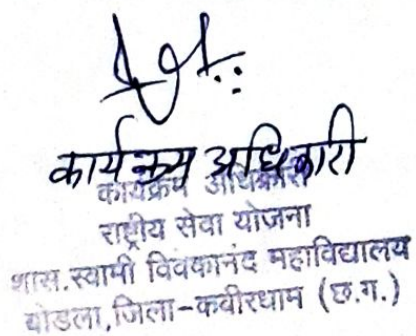 कार्यक्रम अधिकारी
कार्यक्रम अधिकारी
राष्ट्रीय सेवा योजना
शास.स्वामी विवेकानंद महाविद्यालय
बोडला,जिला-कबीरधाम (छ.ग.)